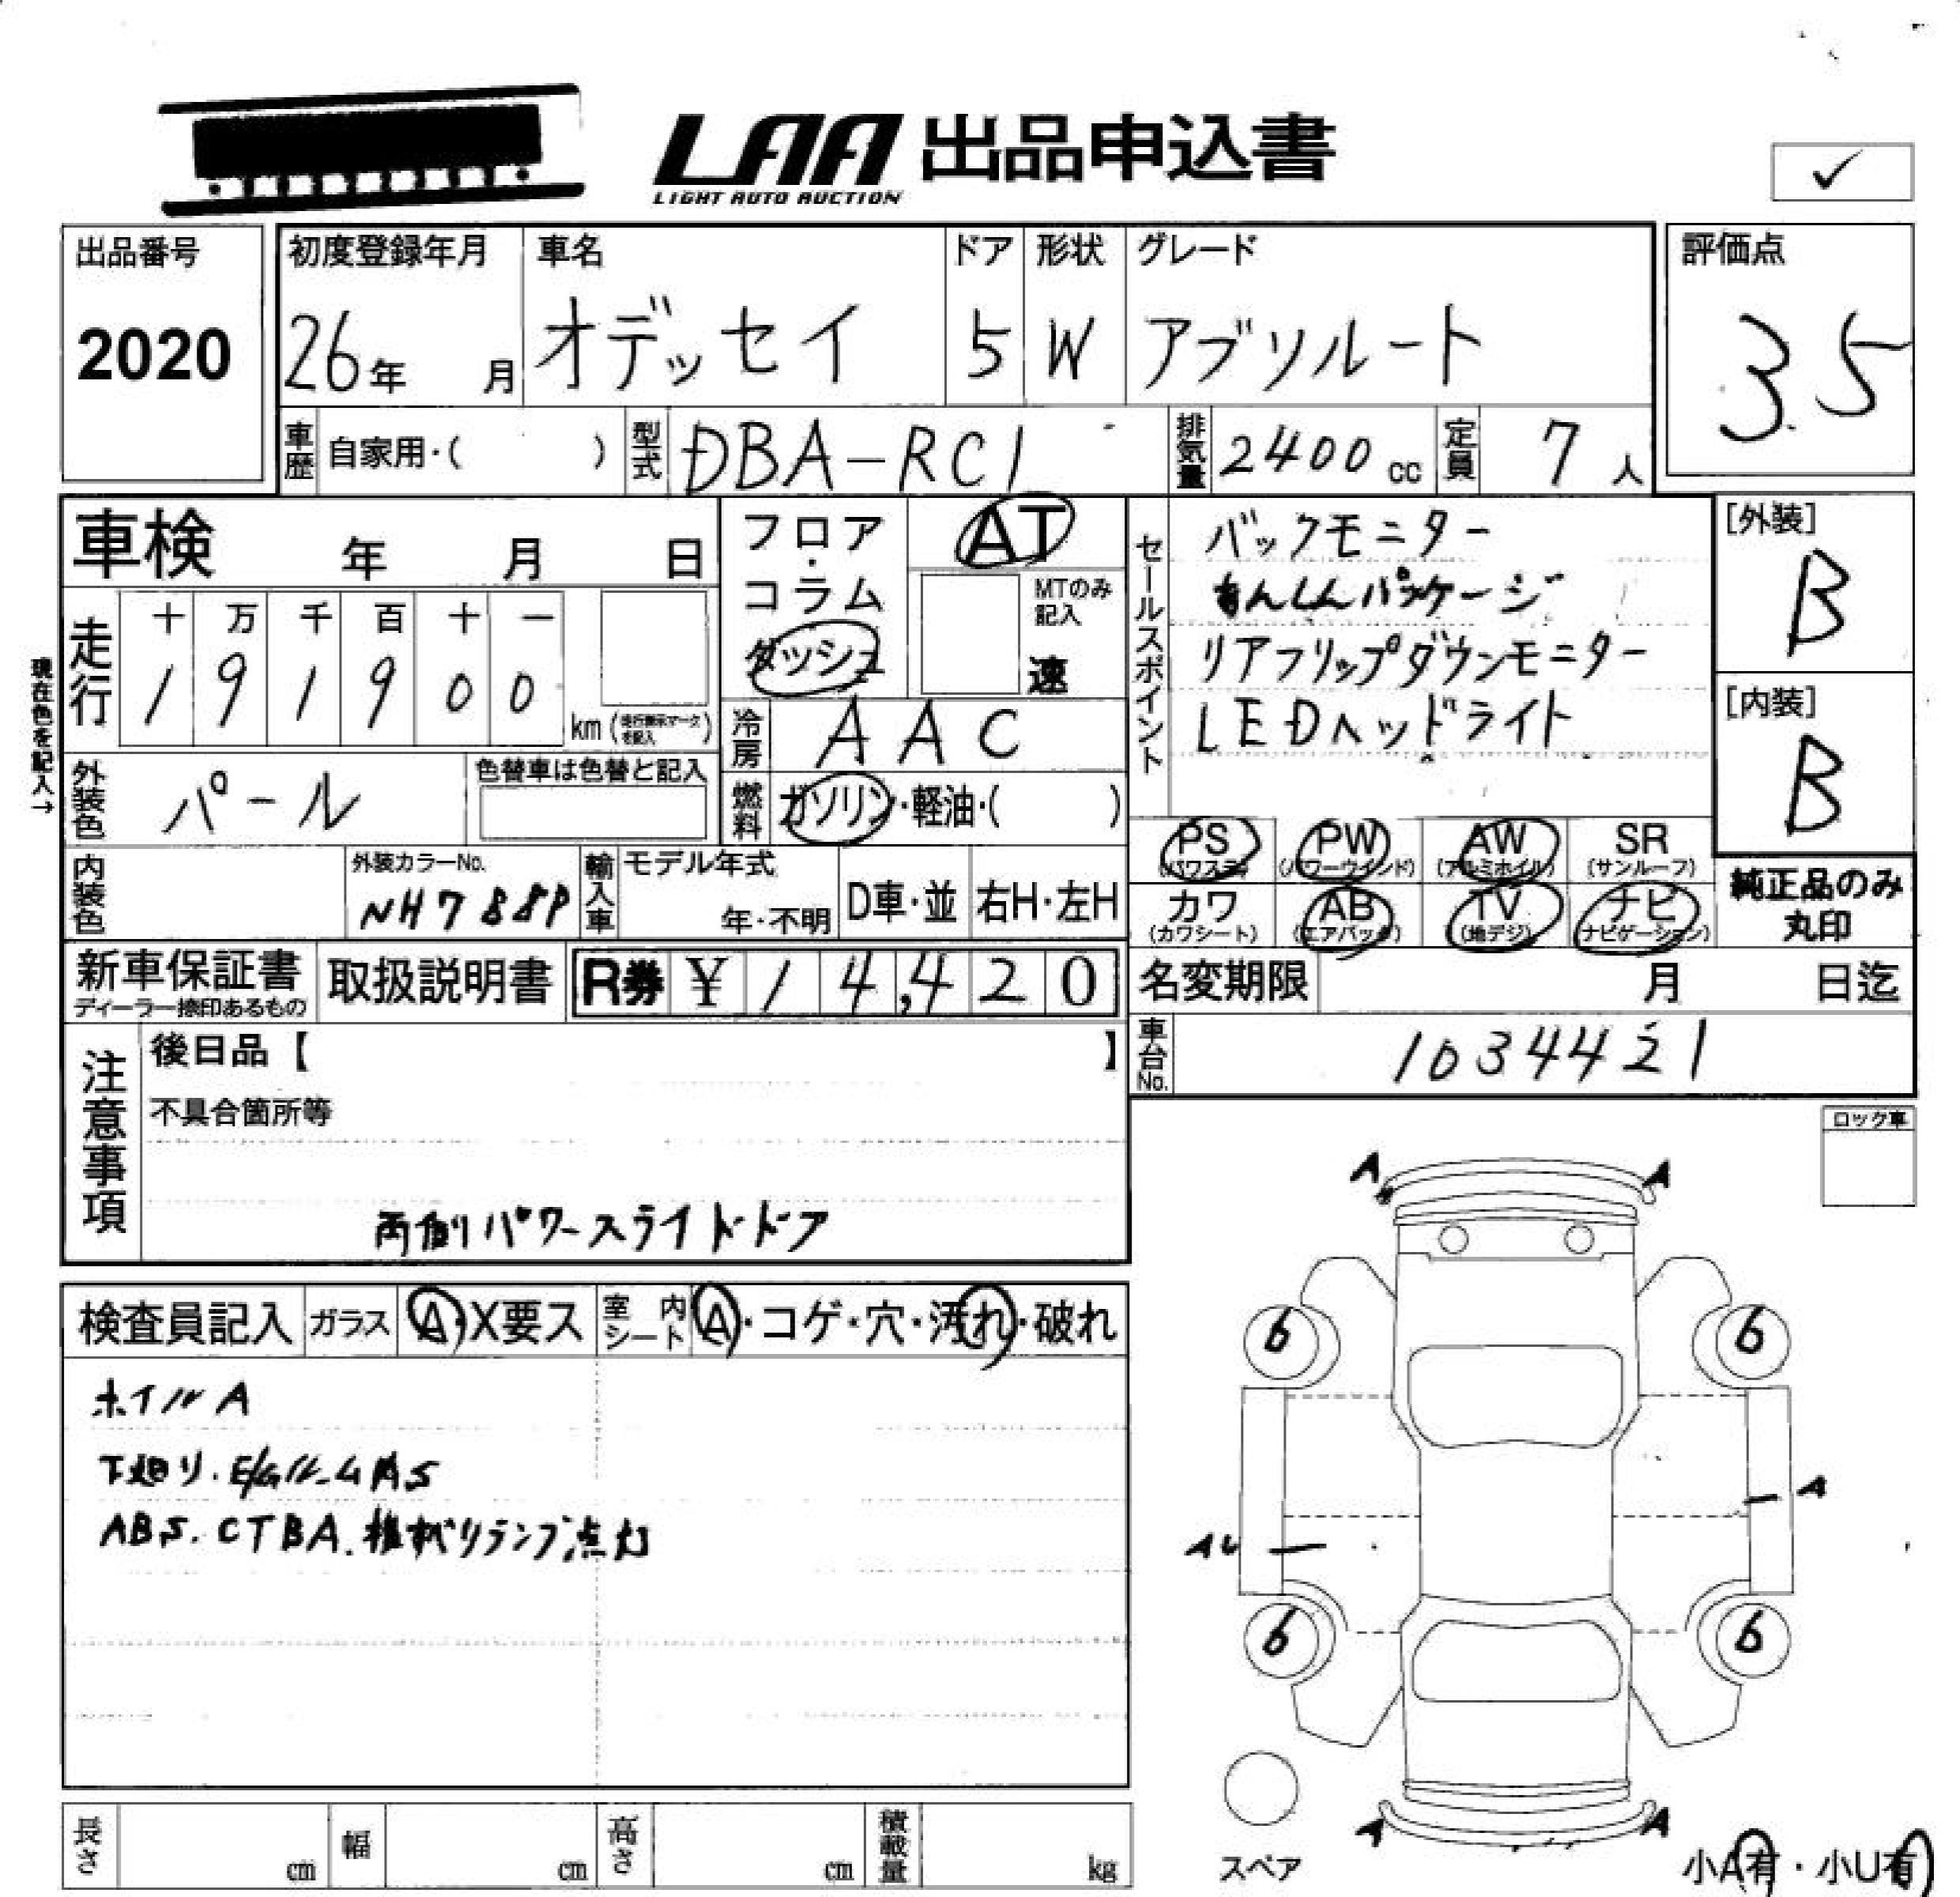 LAA 出品申込書
LIGHT AUTO AUCTION
✓
出品番号 初度登録年月 車名 ドア 形状 グレード 評価点
2020 26年 月 オデッセイ 5 W アブソルート 3.5
車歴 自家用・( ) 型式 DBA-RC1 排気量 2400 cc 定員 7 人
車検 年 月 日
フロア・コラム
ダッシュ
AT
MTのみ記入
速
セールスポイント
バックモニター
あんしんパッケージ
リアフリップダウンモニター
LEDヘッドライト
[外装]
B
[内装]
B
現在色を記入→
走行 十 万 千 百 十 一
1 9 1 9 0 0
km (走行表示マークを記入)
冷房 AAC
外装色 パール 色替車は色替と記入
燃料 ガソリン・軽油・( )
PS PW AW SR
(パワステ) (パワーウインド) (アルミホイル) (サンルーフ)
カワ AB TV ナビ
(カワシート) (エアバッグ) (地デジ) (ナビゲーション)
純正品のみ
丸印
内装色 外装カラーNo. NH788P 輸入車 モデル年式 年・不明 D車・並 右H・左H
新車保証書 取扱説明書 R券 ¥ 14,420
ディーラー捺印あるもの
名変期限 月 日迄
車台No. 1034421
注意事項
後日品【 】
不具合箇所等
両側パワースライドドア
ロック車
検査員記入 ガラス A・X要ス 室内シート A・コゲ・穴・汚れ・破れ
ホイルA
下廻り.E/GルームAS
ABS.CTBA.横滑りランプ点灯
A A
6 6
A
AU
6 6
A A
スペア
小A有・小U有
長さ cm 幅 cm 高さ cm 積載量 kg